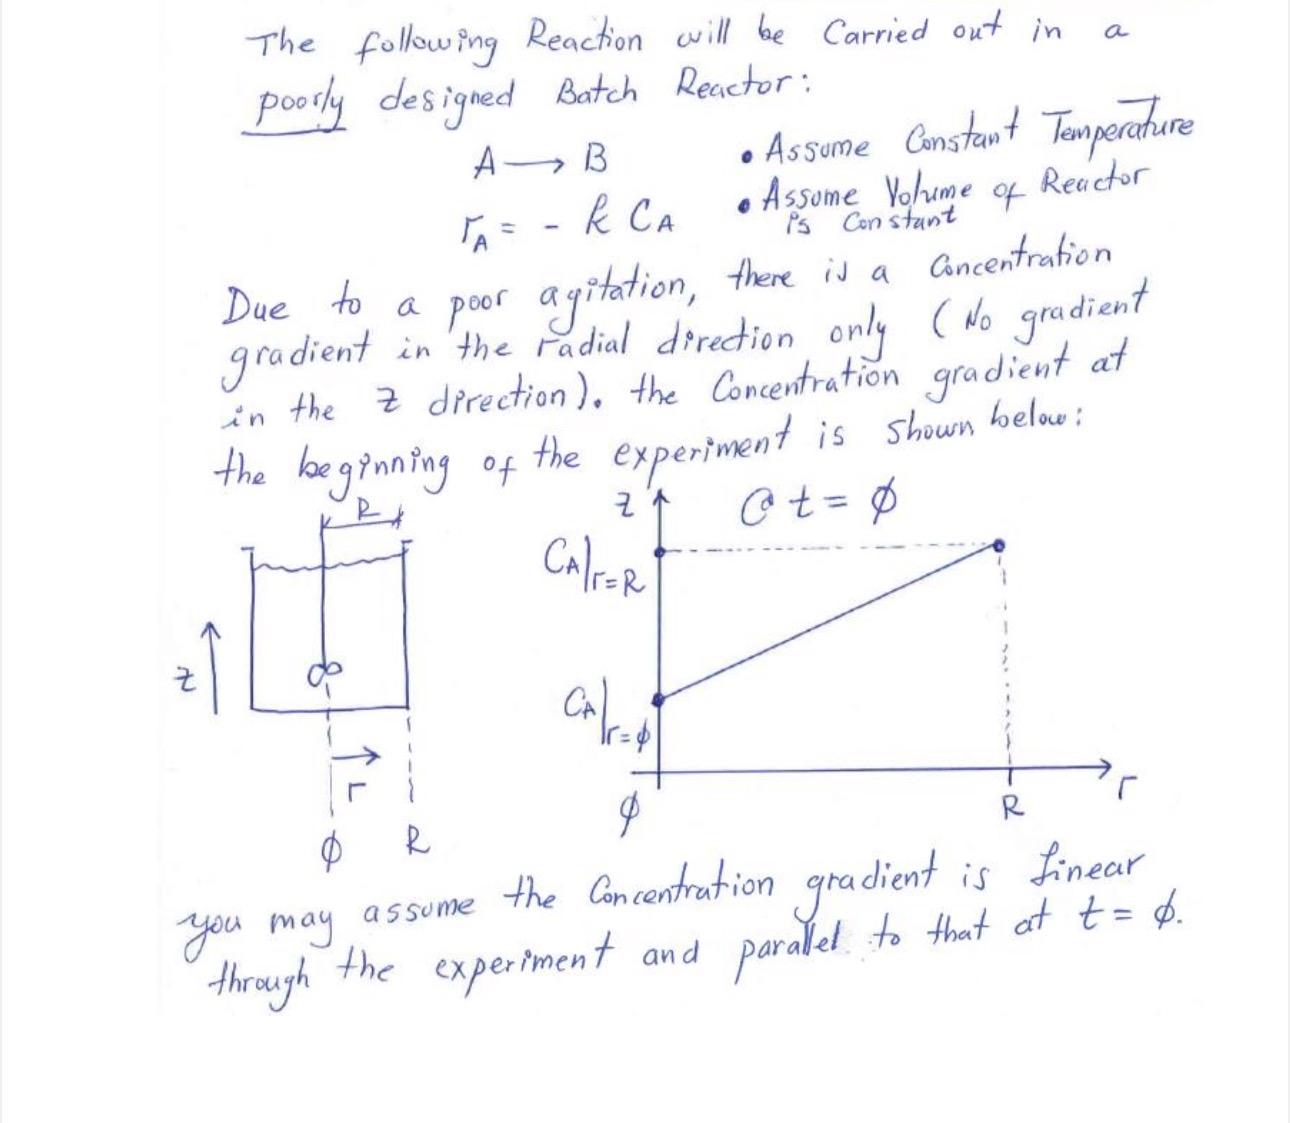 The following Reaction will be Carried out in a
poorly designed Batch Reactor:
A → B
• Assume Constant Temperature
• Assume Volume of Reactor
is Constant
r_A = - k C_A
Due to a poor agitation, there is a Concentration
gradient in the radial direction only (No gradient
in the z direction). the Concentration gradient at
the beginning of the experiment is shown below:
R
z
@ t = ϕ
C_A|r=R
z
C_A|r=ϕ
r
ϕ
R
ϕ
R
r
you may assume the Concentration gradient is linear
through the experiment and parallel to that at t = ϕ.